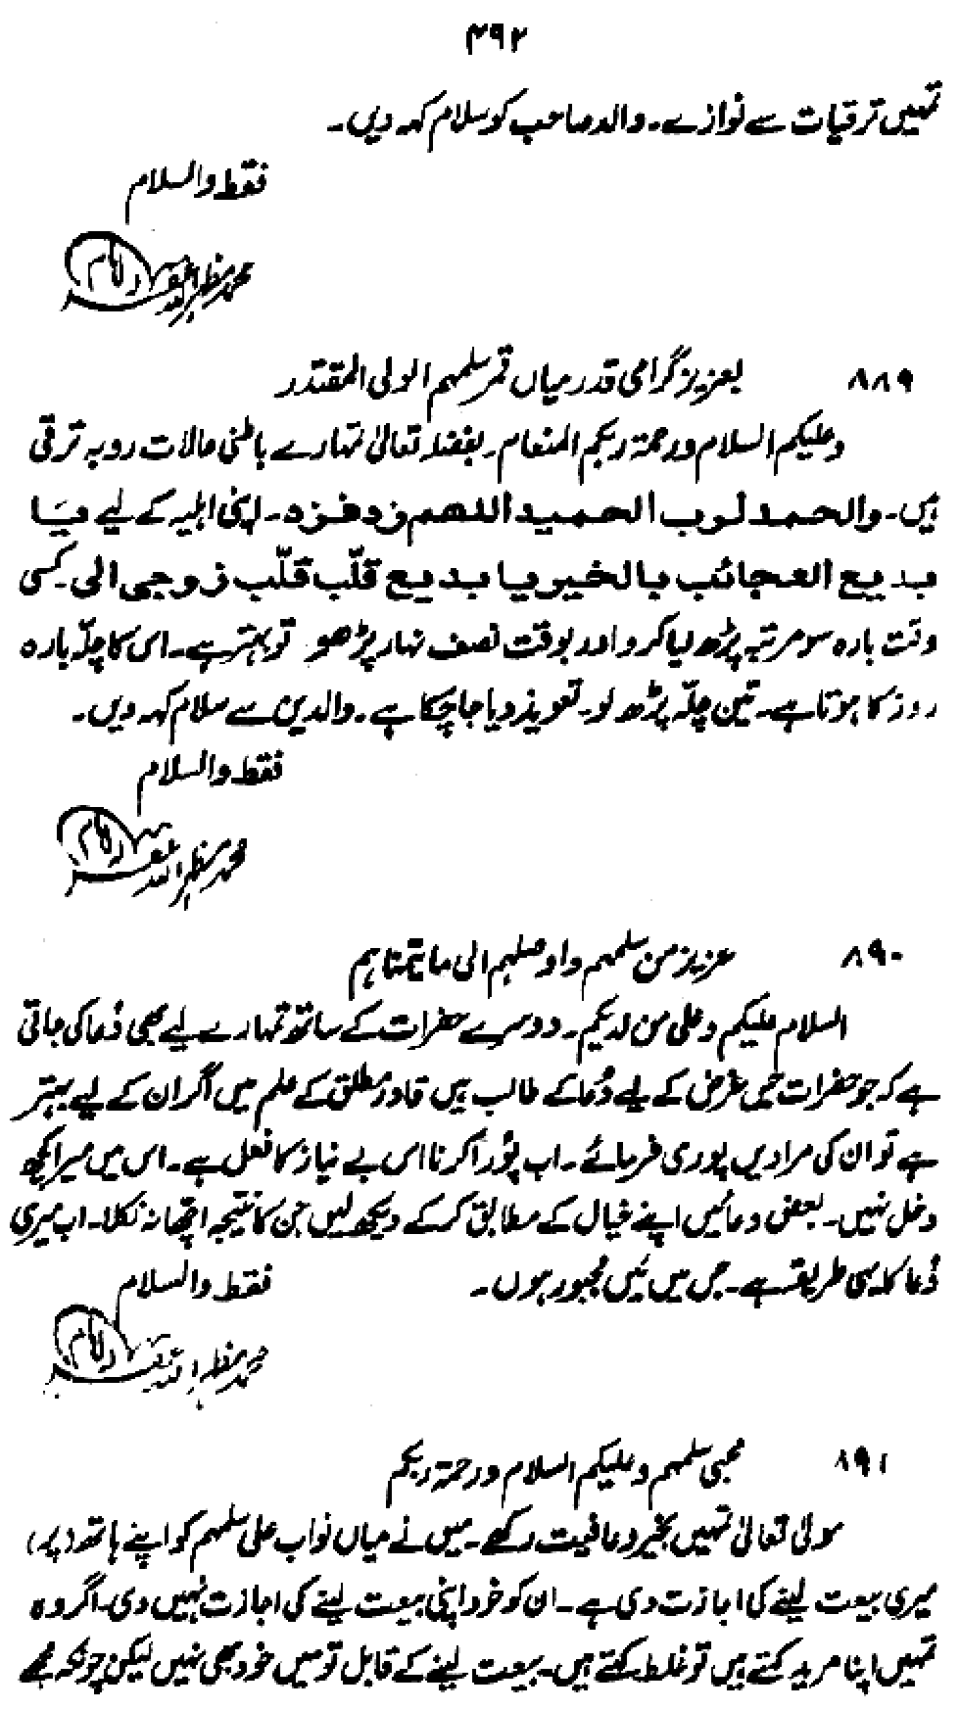 ۴۹۲
تمہیں ترقیات سے نوازے۔ والد صاحب کو سلام کہہ دیں۔
فقط والسلام
محمد مظہر اللہ
۸۸۹ بعزیز گرامی قدر میاں قمر سلمہم الولی المقتدر
وعلیکم السلام ورحمۃ ربکم المنعام۔ بفضلہ تعالیٰ تمہارے باطنی حالات روبہ ترقی
ہیں۔ والحمد لرب الحمید اللھم زد فزد۔ اپنی اہلیہ کے لیے یا
بدیع العجائب بالخیر یا بدیع قلّب قلّب زوجی الی۔ کسی
وقت بارہ سو مرتبہ پڑھ لیا کرو اور بوقت نصف نہار پڑھو تو بہتر ہے۔ اس کا چلّہ بارہ
روز کا ہوتا ہے۔ تین چلّہ پڑھ لو۔ تعویذ دیا جا چکا ہے۔ والدین سے سلام کہہ دیں۔
فقط والسلام
محمد مظہر اللہ
۸۹۰ عزیز من سلمہم واوصلہم الی مایتمناہم
السلام علیکم وعلی من لدیکم۔ دوسرے حضرات کے ساتھ تمہارے لیے بھی دُعا کی جاتی
ہے کہ جو حضرات جس غرض کے لیے دُعا کے طالب ہیں قادر مطلق کے علم میں اگر ان کے لیے بہتر
ہے تو ان کی مرادیں پوری فرمائے۔ اب پُورا کرنا اس بے نیاز کا فعل ہے۔ اس میں میرا کچھ
دخل نہیں۔ بعض دعائیں اپنے خیال کے مطابق کر کے دیکھ لیں جن کا نتیجہ اچھا نہ نکلا۔ اب میری
دُعا کا یہی طریقہ ہے۔ جس میں مَیں مجبور ہوں۔
فقط والسلام
محمد مظہر اللہ
۸۹۱ محبی سلمہم وعلیکم السلام ورحمۃ ربکم
مولیٰ تعالیٰ تمہیں بخیر وعافیت رکھے۔ میں نے میاں نواب علی سلمہم کو اپنے ہاتھ (پر)
میری بیعت لینے کی اجازت دی ہے۔ ان کو خود اپنی بیعت لینے کی اجازت نہیں دی۔ اگر وہ
تمہیں اپنا مرید کہتے ہیں تو غلط کہتے ہیں۔ بیعت لینے کے قابل تو میں خود بھی نہیں لیکن چونکہ مجھے